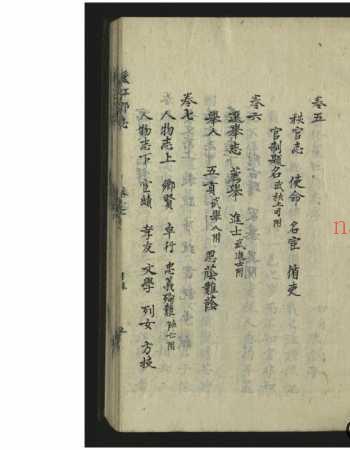 卷五
秩官志 使命 名宦 循吏
官制題名武秩土司附
卷六
選舉志 薦舉 進士武進士附
舉人 五貢武舉人附 恩蔭難蔭
卷七
人物志上 鄉賢 卓行 忠義殉難陣亡附
人物志下 宦績 孝友 文學 列女 方技